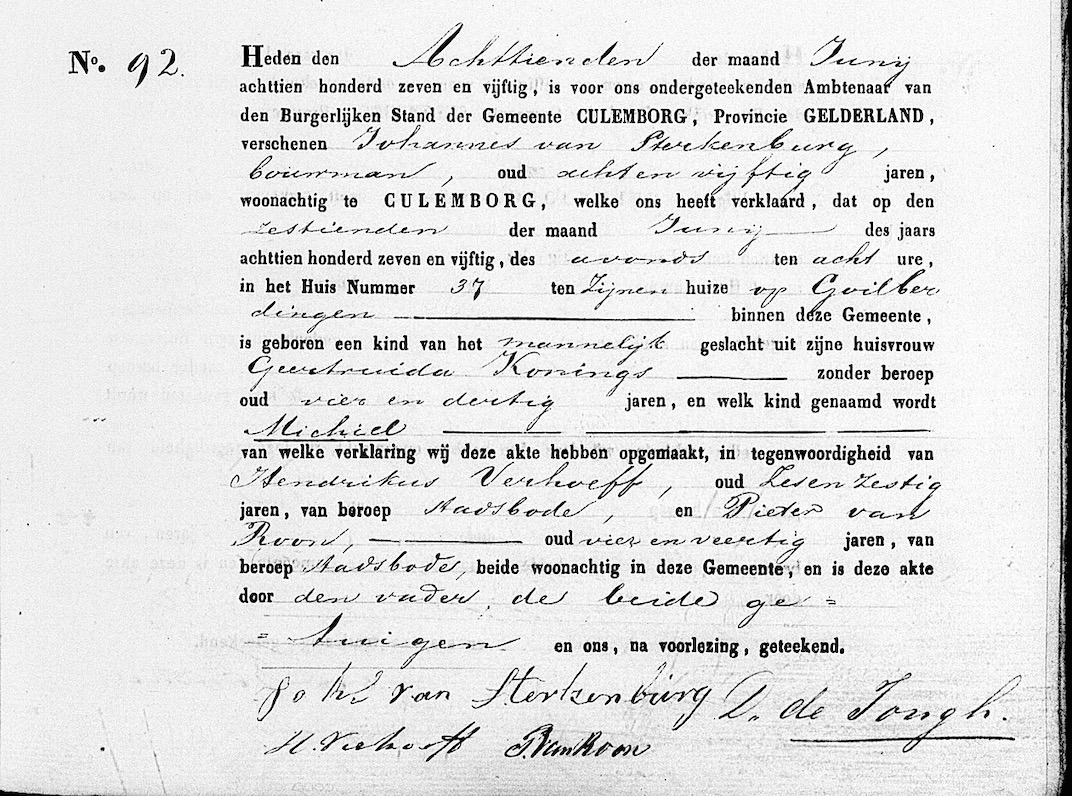 No. 92.
Heden den Achttienden der maand Junij
achttien honderd zeven en vijftig, is voor ons ondergeteekenden Ambtenaar van
den Burgerlijken Stand der Gemeente CULEMBORG, Provincie GELDERLAND,
verschenen Johannes van Sterkenburg,
bouwman, oud acht en vijftig jaren,
woonachtig te CULEMBORG, welke ons heeft verklaard, dat op den
zestienden der maand Junij des jaars
achttien honderd zeven en vijftig, des avonds ten acht ure,
in het Huis Nummer 37 ten Zijnen huize op Goilber
dingen binnen deze Gemeente,
is geboren een kind van het mannelijk geslacht uit zijne huisvrouw
Geertruida Konings zonder beroep
oud vier en dertig jaren, en welk kind genaamd wordt
Michiel
van welke verklaring wij deze akte hebben opgemaakt, in tegenwoordigheid van
Hendrikus Verhoeff, oud Zesenzestig
jaren, van beroep stadsbode, en Pieter van
Roon, oud vier en veertig jaren, van
beroep stadsbode, beide woonachtig in deze Gemeente, en is deze akte
door den vader, de beide ge=
=tuigen en ons, na voorlezing, geteekend.
Johs van Sterkenburg D. de Jongh.
H. Verhoeff P. van Roon